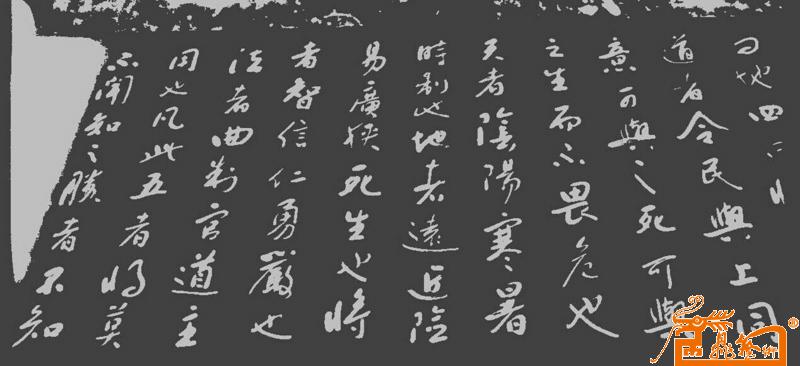 曰地四曰
道者令民與上同
意可與之死可與
之生而不畏危也
天者陰陽寒暑
時制也地者遠近險
易廣狹死生也將
者智信仁勇嚴也
法者曲制官道主
用也凡此五者將莫
不聞知之勝者不知